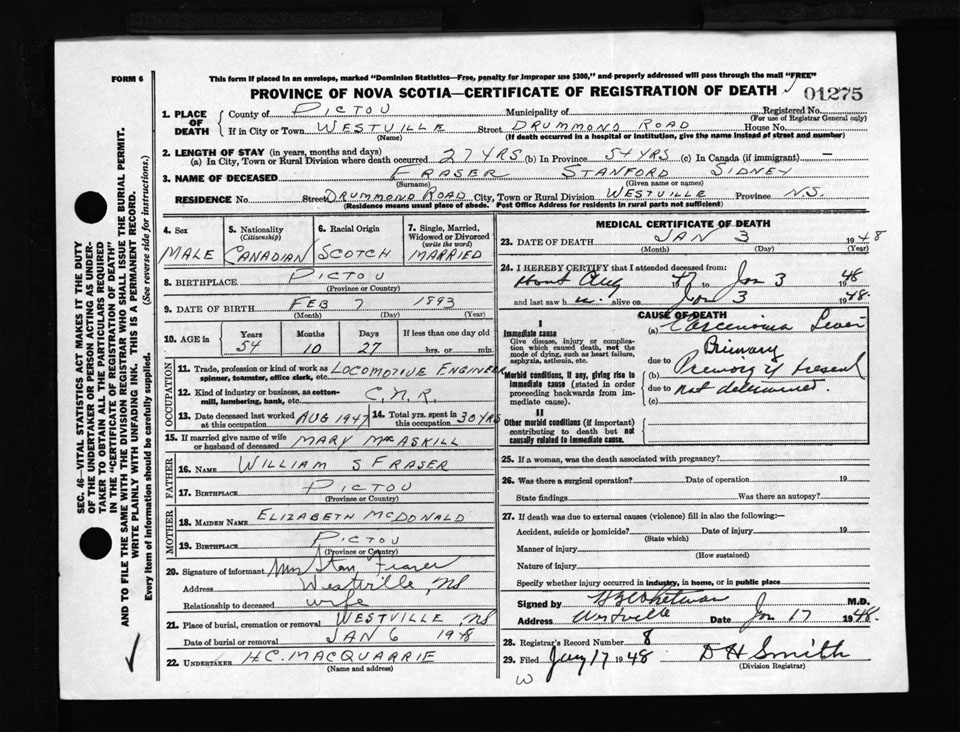 FORM 6
This form if placed in an envelope, marked "Dominion Statistics—Free, penalty for improper use $300," and properly addressed will pass through the mail "FREE"
PROVINCE OF NOVA SCOTIA—CERTIFICATE OF REGISTRATION OF DEATH
01275
1. PLACE OF DEATH
County of PICTOU Municipality of Registered No.
(For use of Registrar General only)
If in City or Town WESTVILLE Street DRUMMOND ROAD House No.
(Name) (If death occurred in a hospital or institution, give the name instead of street and number)
2. LENGTH OF STAY (in years, months and days)
(a) In City, Town or Rural Division where death occurred 27 YRS (b) In Province 54 YRS (c) In Canada (if immigrant) —
3. NAME OF DECEASED FRASER STANFORD SIDNEY
(Surname) (Given name or names)
RESIDENCE No. Street DRUMMOND ROAD City, Town or Rural Division WESTVILLE Province N.S.
(Residence means usual place of abode. Post Office Address for residents in rural parts not sufficient)
4. Sex
MALE
5. Nationality
(Citizenship)
CANADIAN
6. Racial Origin
SCOTCH
7. Single, Married, Widowed or Divorced
(write the word)
MARRIED
8. BIRTHPLACE PICTOU
(Province or Country)
9. DATE OF BIRTH FEB 7 1893
(Month) (Day) (Year)
10. AGE in
Years Months Days If less than one day old
54 10 27 hrs. or min.
OCCUPATION
11. Trade, profession or kind of work as LOCOMOTIVE ENGINEER
spinner, teamster, office clerk, etc.
12. Kind of industry or business, as cotton-
mill, lumbering, bank, etc. C.N.R.
13. Date deceased last worked at this occupation AUG 1947
14. Total yrs. spent in this occupation 30 YRS
15. If married give name of wife or husband of deceased MARY MACASKILL
FATHER
16. NAME WILLIAM S FRASER
17. BIRTHPLACE PICTOU
(Province or Country)
MOTHER
18. MAIDEN NAME ELIZABETH MCDONALD
19. BIRTHPLACE PICTOU
(Province or Country)
20. Signature of informant Mrs Stan Fraser
Address Westville, NS
Relationship to deceased wife
21. Place of burial, cremation or removal WESTVILLE, NS
Date of burial or removal JAN 6 1948
22. UNDERTAKER H.C. MACQUARRIE
(Name and address)
MEDICAL CERTIFICATE OF DEATH
23. DATE OF DEATH JAN 3 1948
(Month) (Day) (Year)
24. I HEREBY CERTIFY that I attended deceased from:
about Aug 1947 to Jan 3 1948
and last saw h alive on Jan 3 1948.
CAUSE OF DEATH
I
Immediate cause
Give disease, injury or complication which caused death, not the mode of dying, such as heart failure, asphyxia, asthenia, etc.
(a) Carcinoma Liver
Primary
due to
Morbid conditions, if any, giving rise to immediate cause (stated in order proceeding backwards from immediate cause).
(b) Primary if present
due to not determined.
(c)
II
Other morbid conditions (if important) contributing to death but not causally related to immediate cause.
25. If a woman, was the death associated with pregnancy?
26. Was there a surgical operation? Date of operation 19
State findings Was there an autopsy?
27. If death was due to external causes (violence) fill in also the following:—
Accident, suicide or homicide? Date of injury 19
(State which)
Manner of injury
(How sustained)
Nature of injury
Specify whether injury occurred in industry, in home, or in public place
Signed by M.D.
Address Westville Date Jan 17 1948.
28. Registrar's Record Number 8
29. Filed Jany 17 1948 D H Smith
(Division Registrar)
W
SEC. 46—VITAL STATISTICS ACT MAKES IT THE DUTY
OF THE UNDERTAKER OR PERSON ACTING AS UNDER-
TAKER TO OBTAIN ALL THE PARTICULARS REQUIRED
IN THE "CERTIFICATE OF REGISTRATION OF DEATH"
AND TO FILE THE SAME WITH THE DIVISION REGISTRAR WHO SHALL ISSUE THE BURIAL PERMIT.
WRITE PLAINLY WITH UNFADING INK. THIS IS A PERMANENT RECORD.
Every item of information should be carefully supplied. (See reverse side for instructions.)